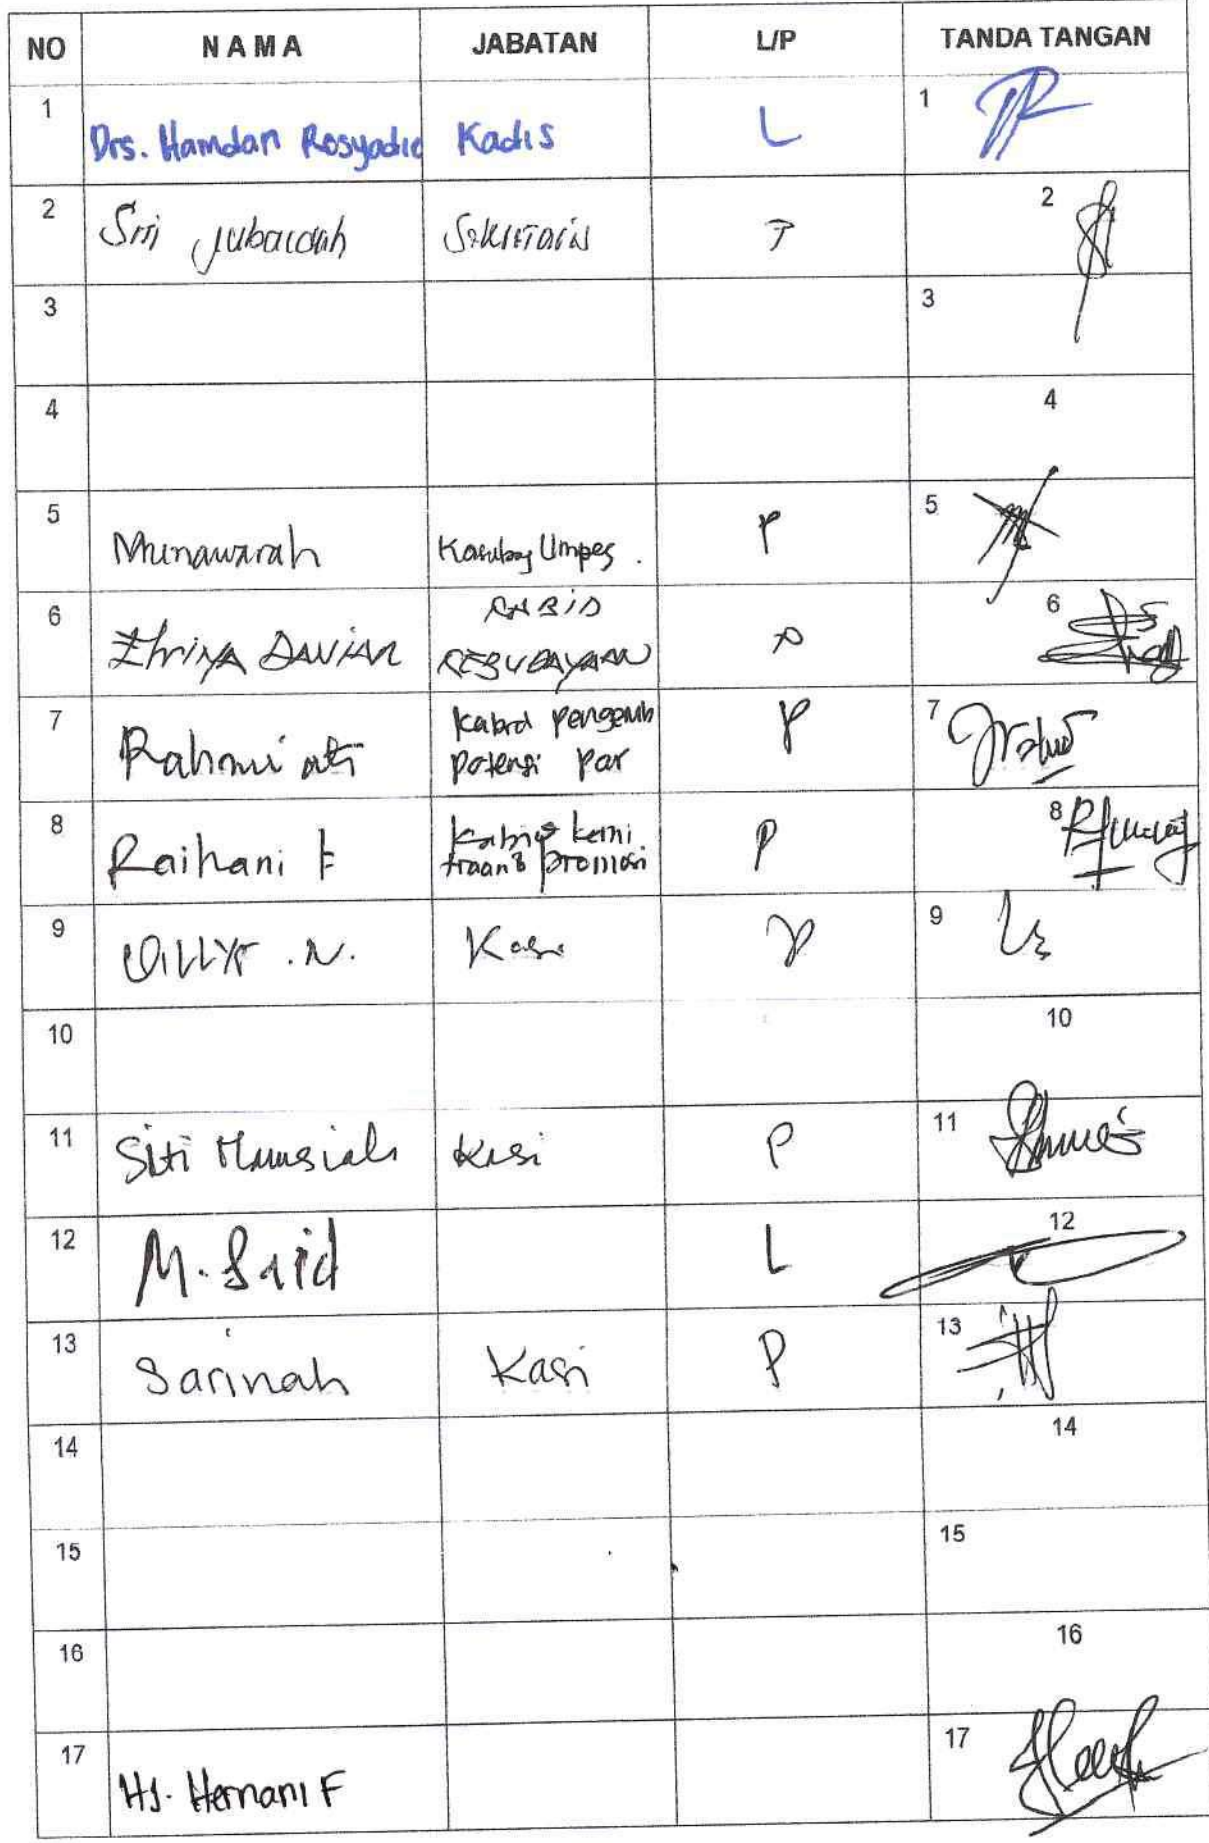 NO NAMA JABATAN L/P TANDA TANGAN
1 Drs. Hamdan Rosyadie Kadis L 1
2 Jubaidah Sekretaris P 2
3 3
4 4
5 Munawarah Kasubag Umpeg. P 5
6 KABID P 6
KEBUDAYAAN
7 Rahmiati Kabid Pengemb P 7
Potensi Par
8 Raihani F Kabid kemi P 8
traan & promosi
9 N. Kasi P 9
10 10
11 Siti Kasi P 11
12 M. Said L 12
13 Sarinah Kasi P 13
14 14
15 15
16 16
17 HJ. Hernani F 17